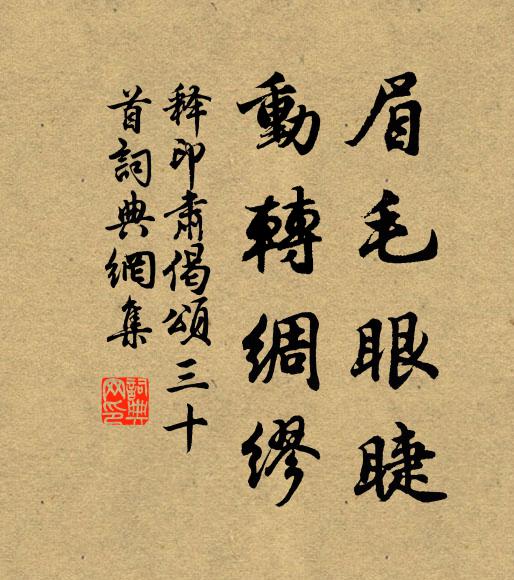 眉毛眼睫
動轉綢繆
释印肅偈頌三十
首詞典網集
詞典
网印